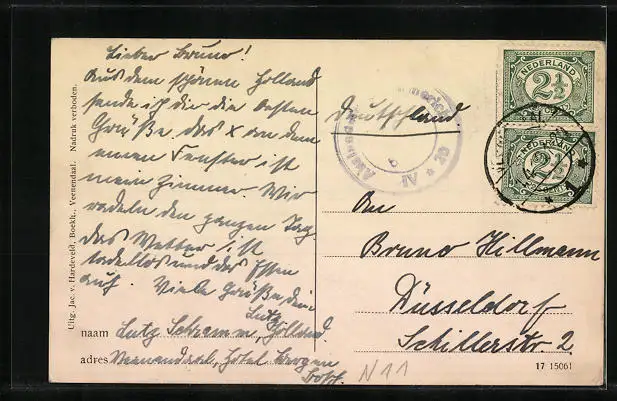 Lieber Bruno!
Aus dem schönen Holland
sende ich dir die besten
Grüße. Das X an dem
einen Fenster ist
mein Zimmer. Wir
radeln den ganzen Tag.
Das Wetter ist
tadellos und das Essen
auch. Viele Grüße dein
Lutz
naam Lutz Schramm, Holland.
adres Veenendaal, Hotel
Deutschland
An
Bruno Hillmann
Düsseldorf
Schillerstr. 2
N 11
17 15061
Uitg. Jac. v. Hardeveld, Boekh., Veenendaal. Nadruk verboden.
NEDERLAND
2½
NEDERLAND
2½